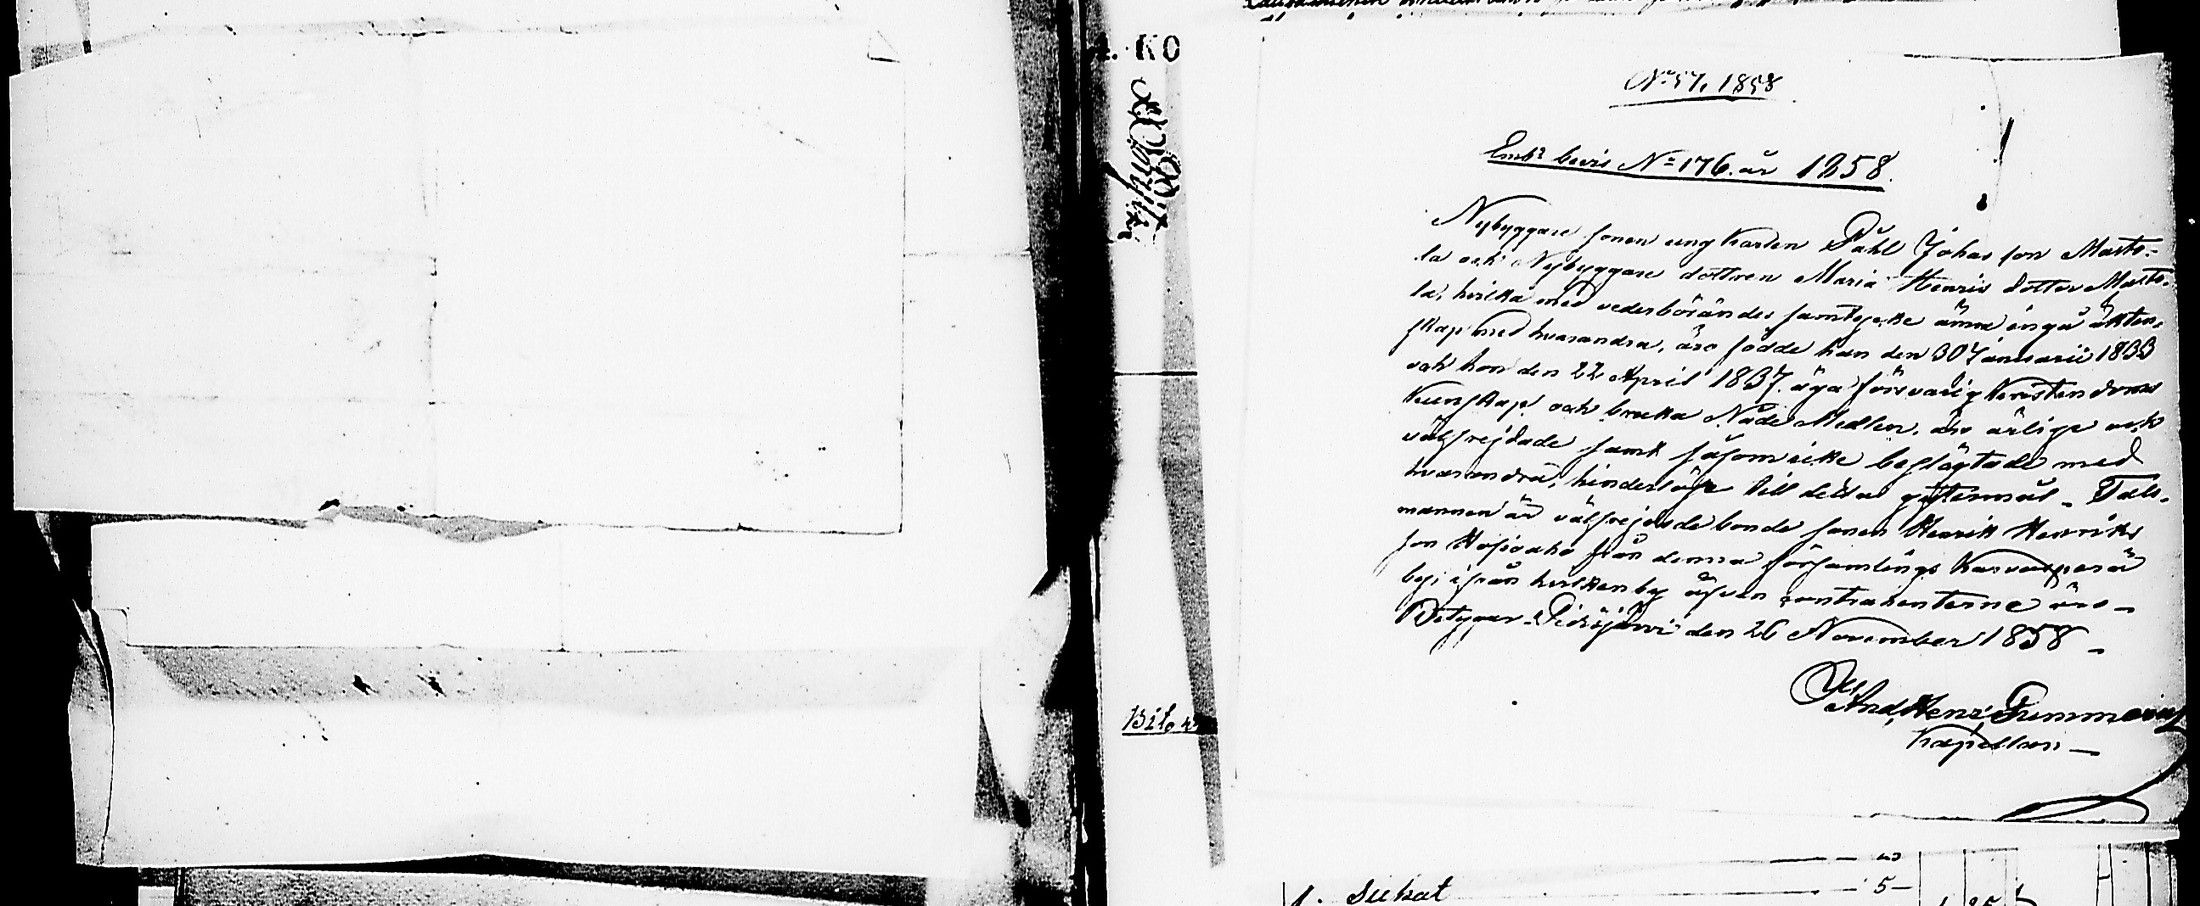 4. KO
No 57. 1858
Embt bevis No 176. år 1858.
Nybyggare sonen ungkarlen Påhl Johas son Marts-
la och Nybyggare dottren Maria Henris dotter Marts-
la, hvilka med vederbörandes samtycke ämna ingå äkten-
skap med hvarandra, äro födde han den 30 Januarii 1833
och hon den 22 April 1837. äga försvarlig Kristendoms
Kunskap och bruka Nåde Medlen, äro ärlige och
välfrejdade samt såsom icke beslägtade med
hvarandra, hinderslöse till deras giftermål - Tals-
mannen är välfrejdade bonde sonen Henrik Henriks
son från denna församlings
by, ifrån hvilken by äfven contrahenterne äro -
Betygar - Pidisjärvi den 26 November 1858 -
And. Henr.
Kapellan -
Bil.
5 -